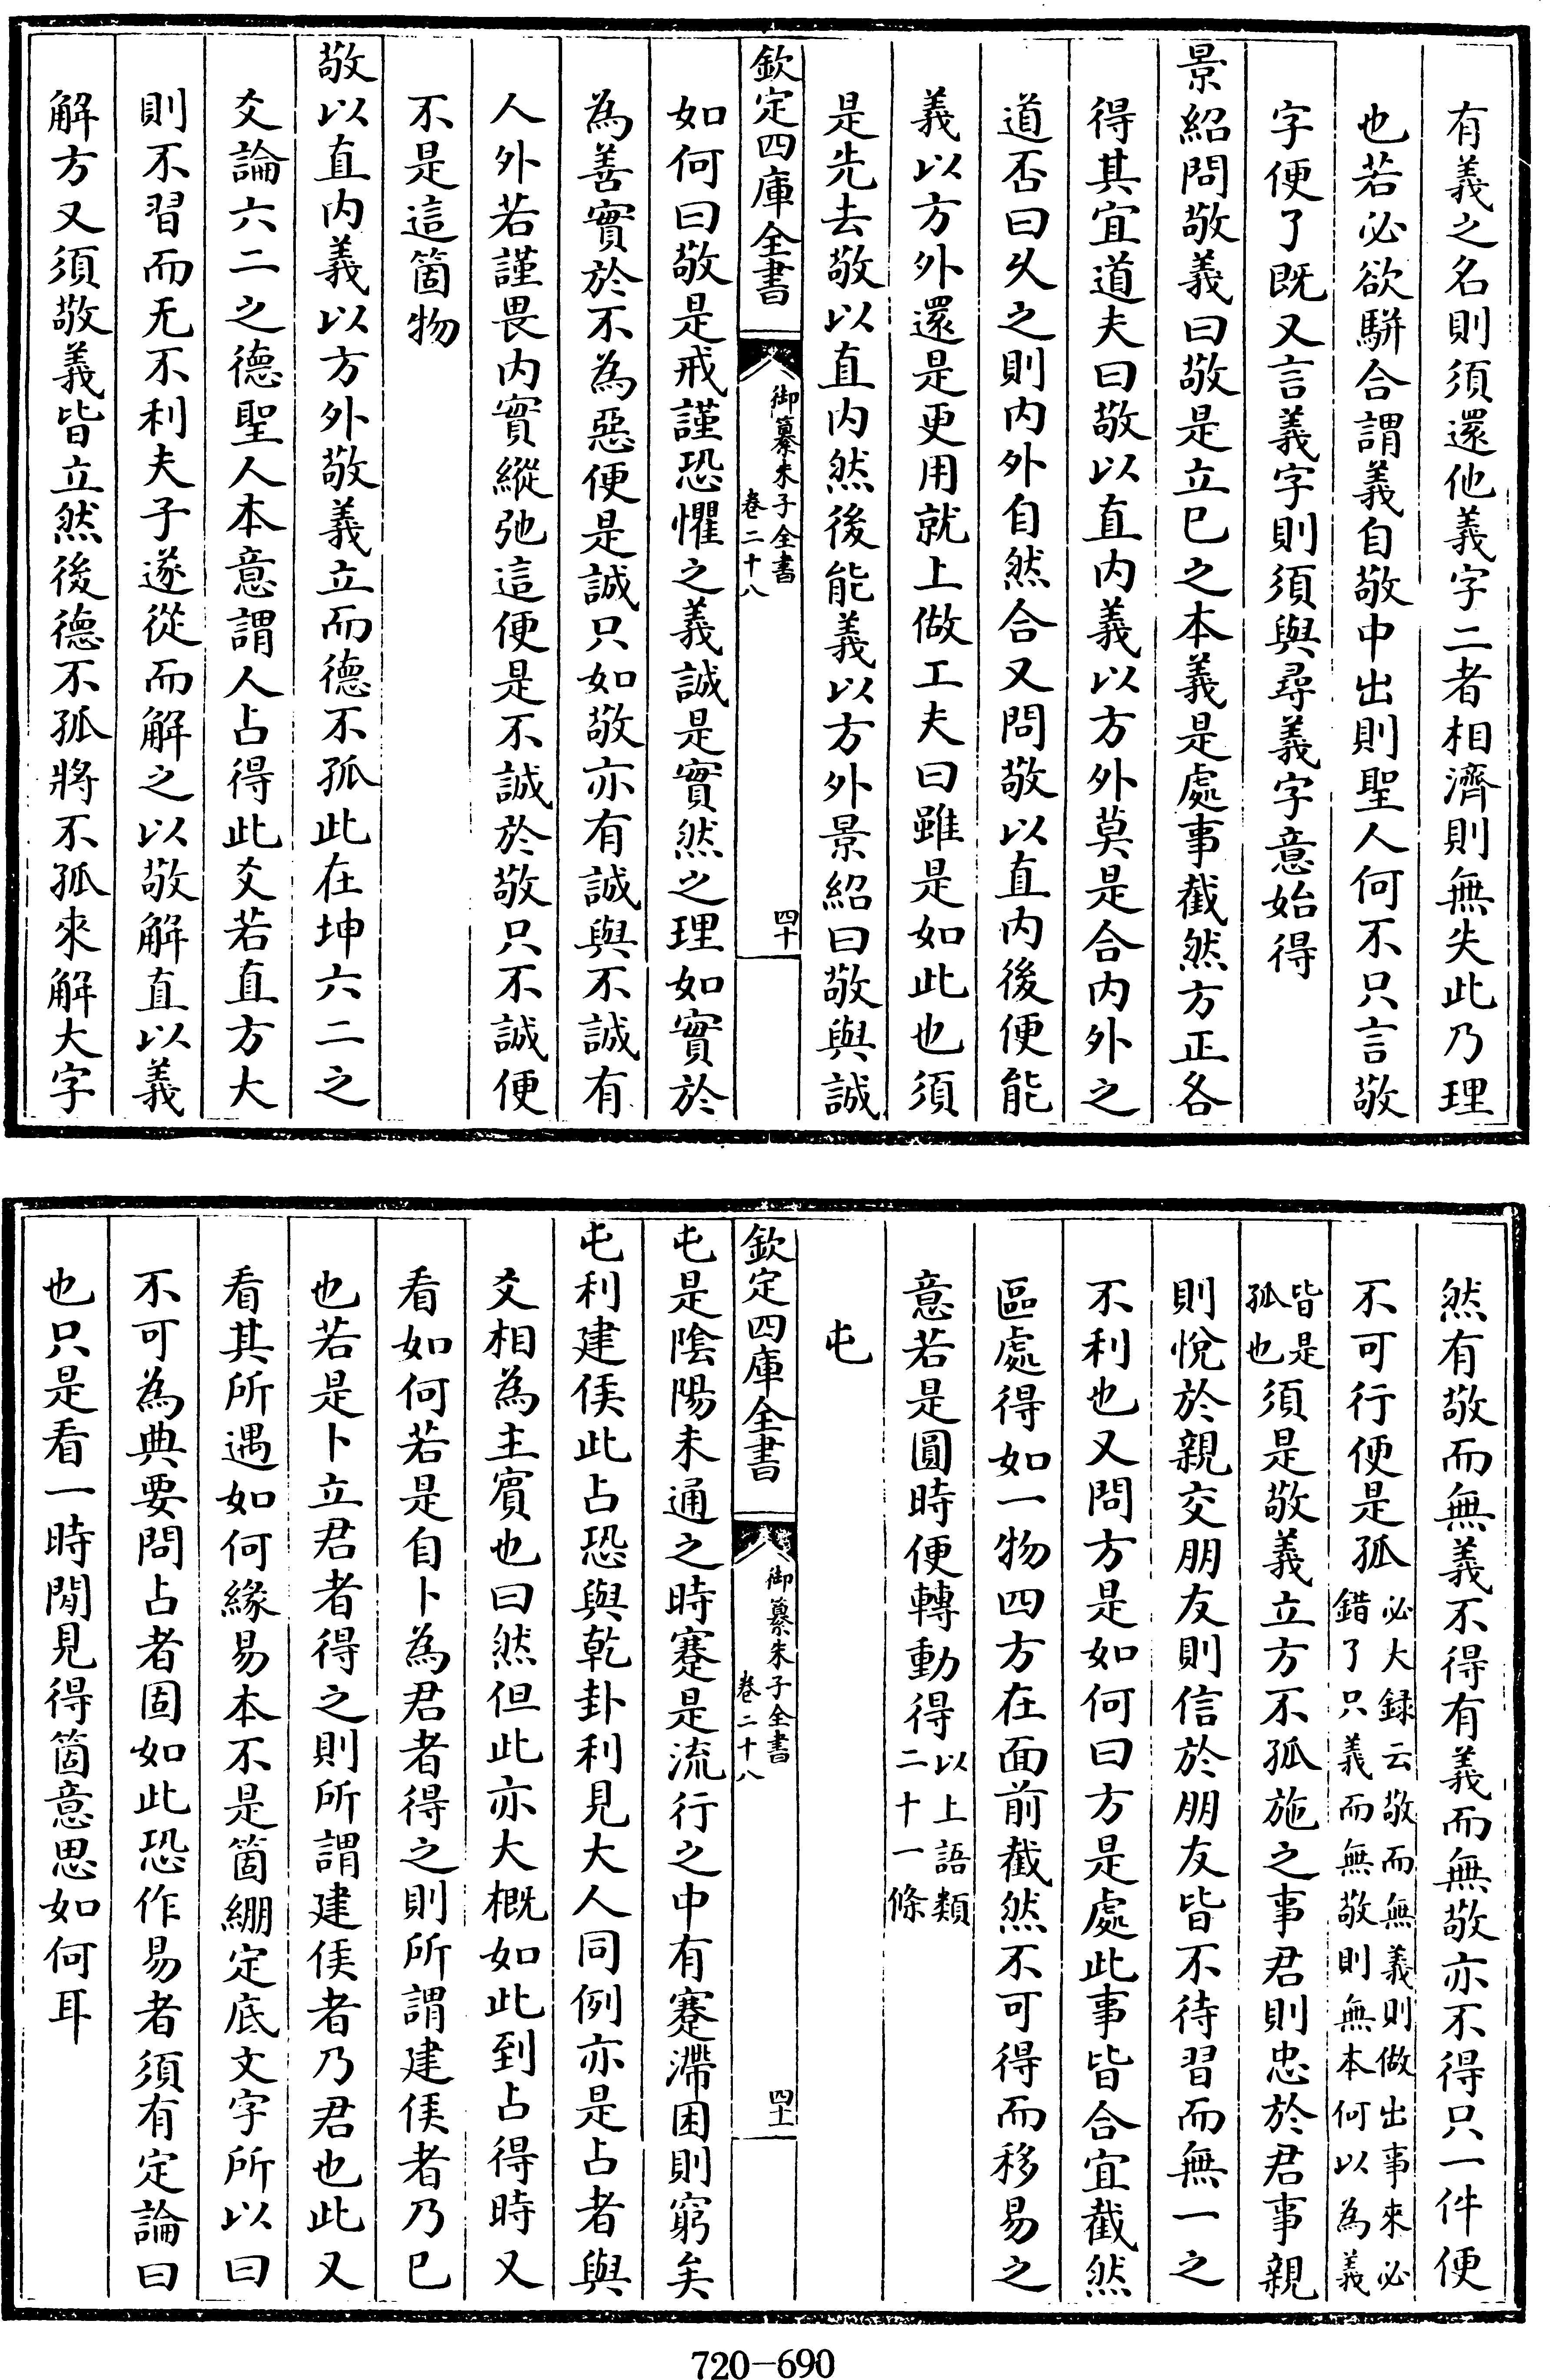 有義之名則須還他義字二者相濟則無失此乃理
也若必欲騈合謂義自敬中出則聖人何不只言敬
字便了既又言義字則須與尋義字意始得
景紹問敬義曰敬是立已之本義是處事截然方正各
得其宜道夫曰敬以直内義以方外莫是合内外之
道否曰乆之則内外自然合又問敬以直内後便能
義以方外還是更用就上做工夫曰雖是如此也須
是先去敬以直内然後能義以方外景紹曰敬與誠
欽定四庫全書
御纂朱子全書
卷二十八
四十
如何曰敬是戒謹恐懼之義誠是實然之理如實於
為善實於不為惡便是誠只如敬亦有誠與不誠有
人外若謹畏内實縱弛這便是不誠於敬只不誠便
不是這箇物
敬以直内義以方外敬義立而德不孤此在坤六二之
爻論六二之德聖人本意謂人占得此爻若直方大
則不習而无不利夫子遂從而解之以敬解直以義
解方又須敬義皆立然後德不孤將不孤來解大字
然有敬而無義不得有義而無敬亦不得只一件便
不可行便是孤必大録云敬而無義則做出事來必錯了只義而無敬則無本何以為義
皆是孤也須是敬義立方不孤施之事君則忠於君事親
則悅於親交朋友則信於朋友皆不待習而無一之
不利也又問方是如何曰方是處此事皆合宜截然
區處得如一物四方在面前截然不可得而移易之
意若是圓時便轉動得以上語類二十一條
屯
欽定四庫全書
御纂朱子全書
卷二十八
四十一
屯是陰陽未通之時蹇是流行之中有蹇滯困則窮矣
屯利建侯此占恐與乾卦利見大人同例亦是占者與
爻相為主賔也曰然但此亦大概如此到占得時又
看如何若是自卜為君者得之則所謂建侯者乃已
也若是卜立君者得之則所謂建侯者乃君也此又
看其所遇如何緣易本不是箇繃定底文字所以曰
不可為典要問占者固如此恐作易者須有定論曰
也只是看一時閒見得箇意思如何耳
720-690